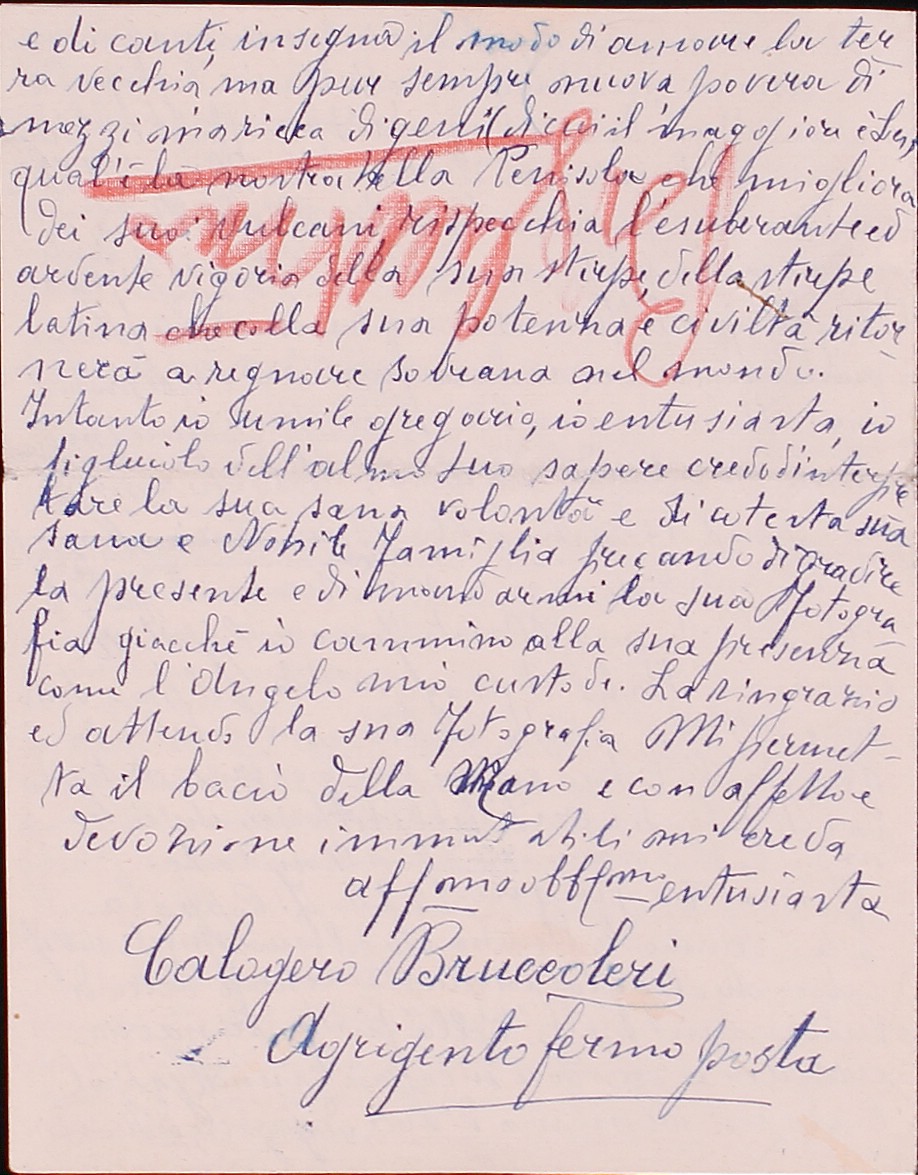 e di canti, insegna il modo di amare la ter
ra vecchia ma pur sempre nuova povera di
mezzi ma ricca di geni (di cui il maggiore è Lei)
qual'è la nostra bella Penisola che
dei suoi Vulcani rispecchia l'esuberante ed
ardente vigoria della sua stirpe, della stirpe
latina che colla sua potenza e civiltà ritor
nerà a regnare sovrana nel mondo.
Intanto io umile gregario, io entusiasta, io
figliuolo dell'almo suo sapere credo d'interpre
tare la sua sana volontà e di cotesta sua
sana e Nobile famiglia precando di gradire
la presente e di mandarmi la sua fotogra
fia giacchè io cammino alla sua presenza
come l'Angelo mio custode. La ringrazio
ed attendo la sua fotografia Mi permet-
ta il bacio della Mano e con affetto e
devozione immutabili mi creda
aff mo obbl mo entusiasta
Calogero Bruccoleri
Agrigento fermo posta